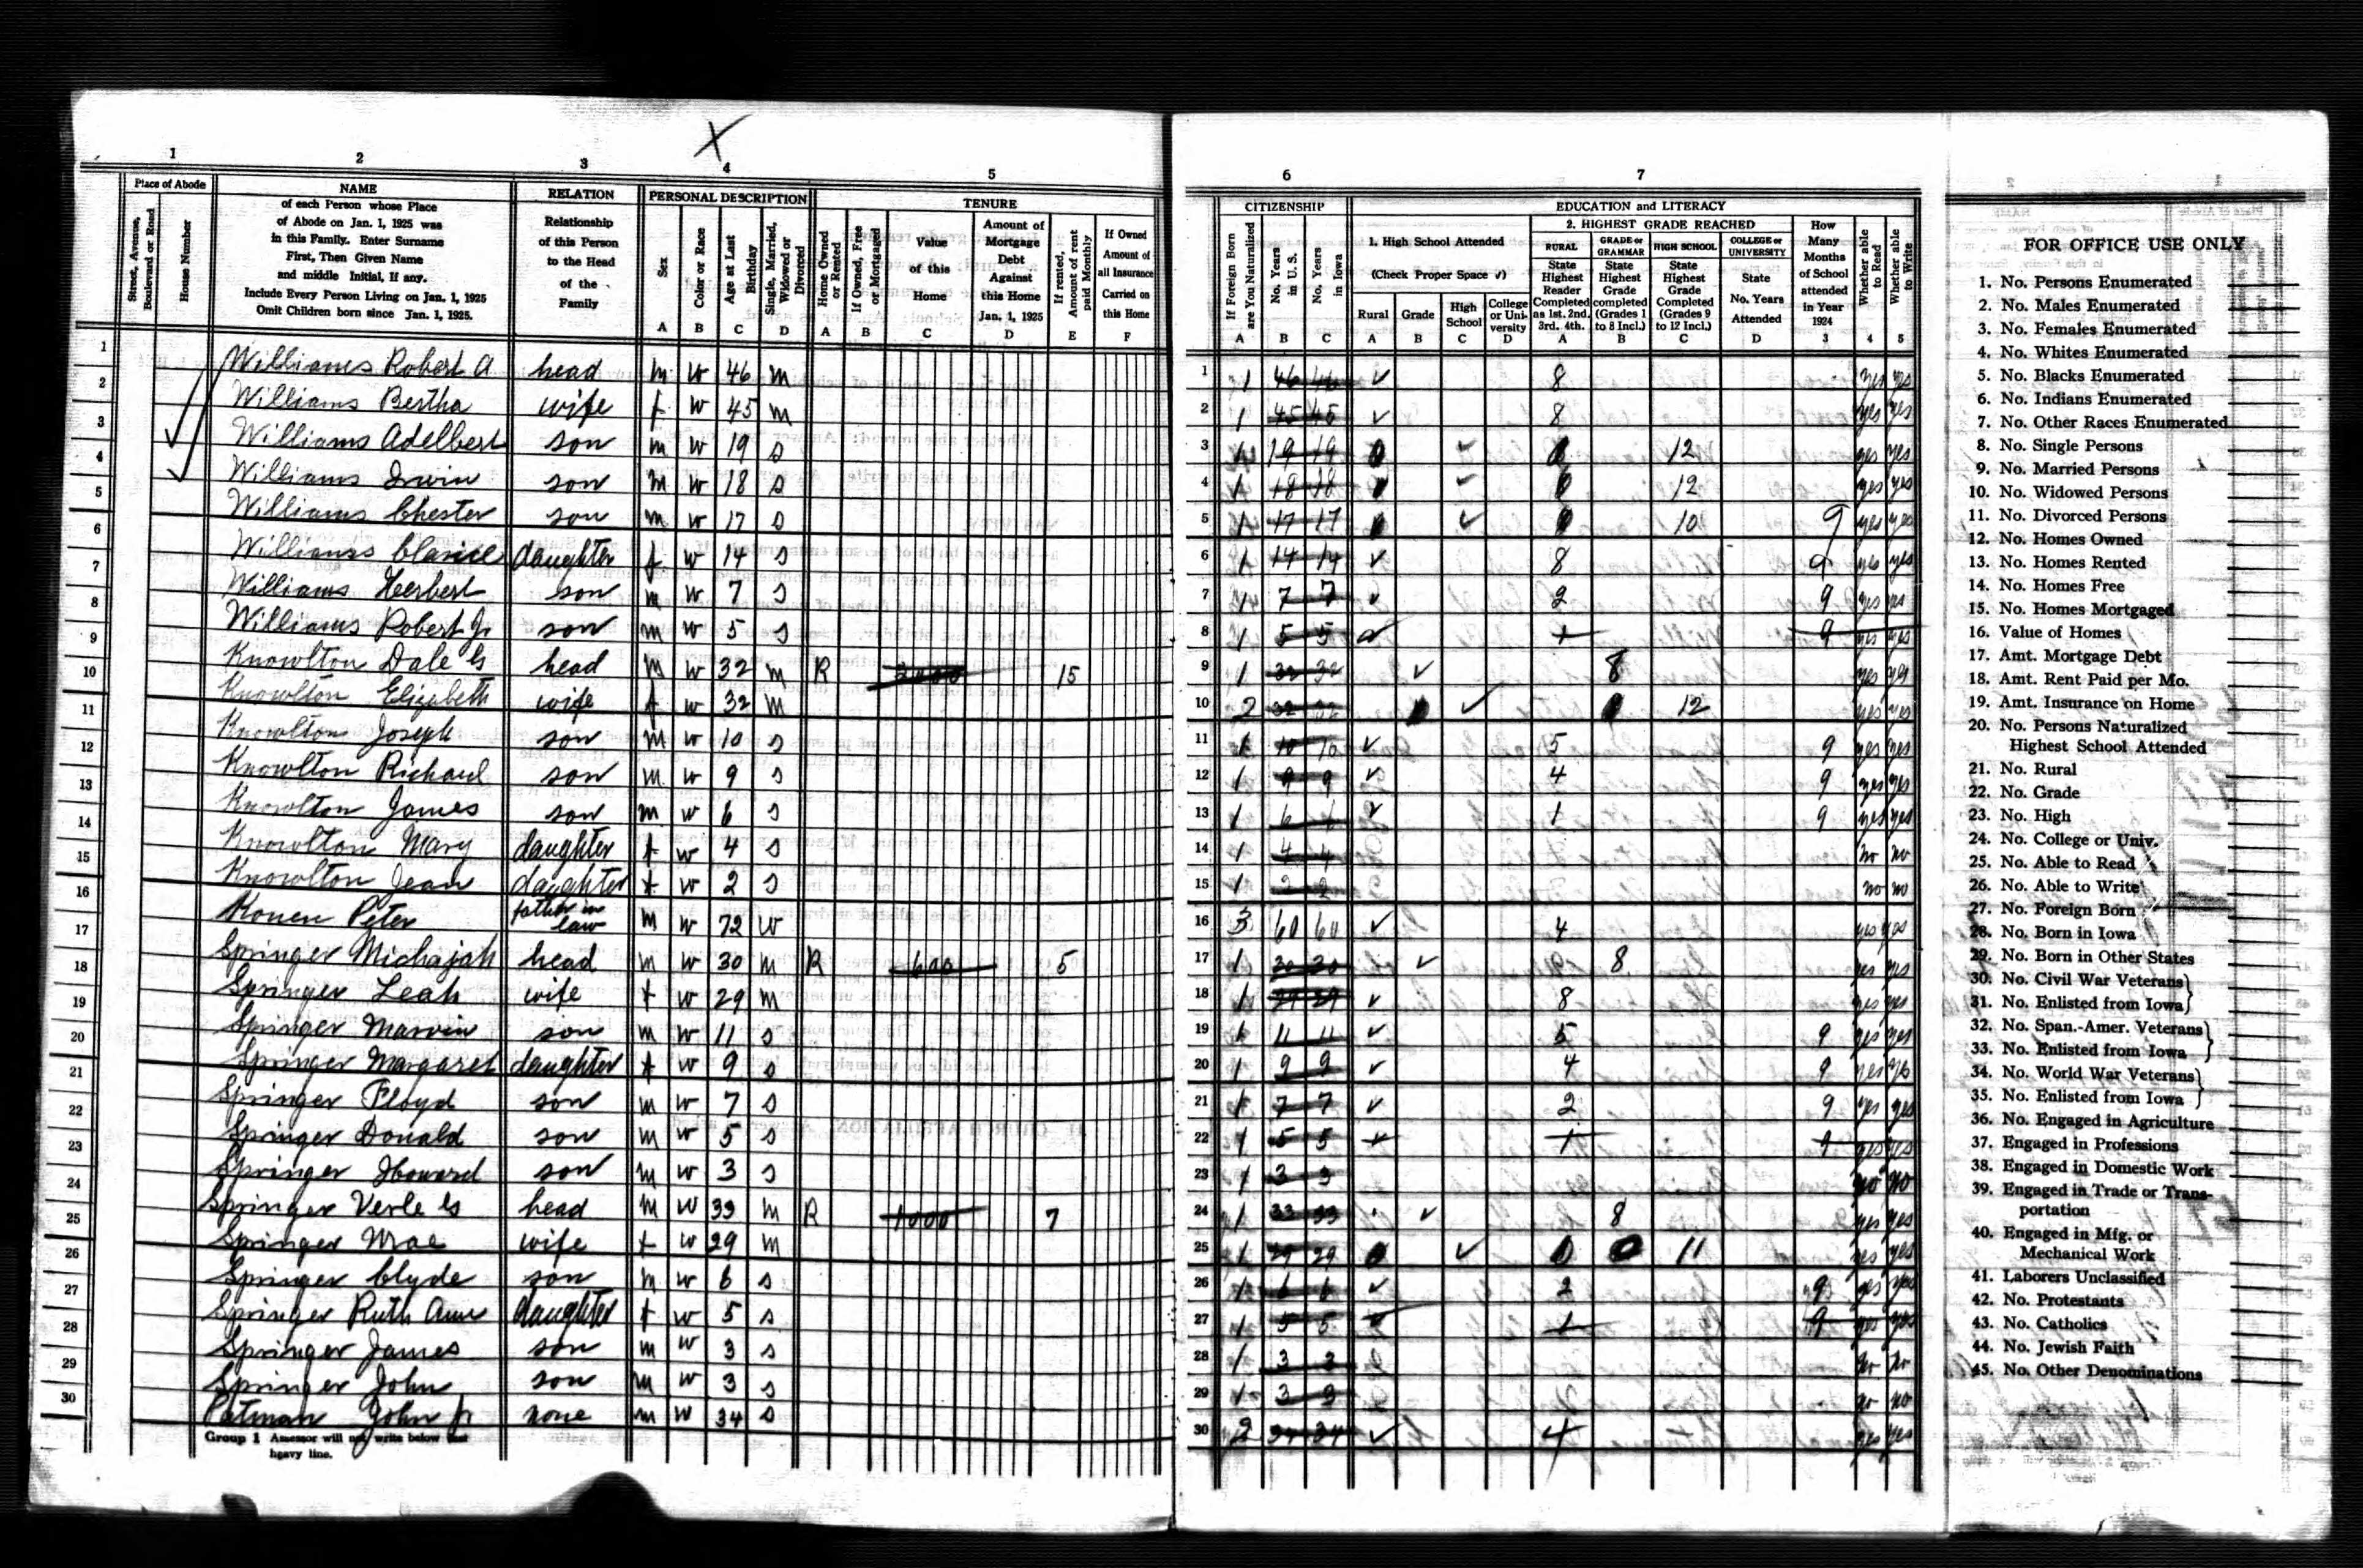 X
1 2 3 4 5
Place of Abode
Street, Avenue, Boulevard or Road
House Number
NAME
of each Person whose Place
of Abode on Jan. 1, 1925 was
in this Family. Enter Surname
First, Then Given Name
and middle Initial, If any.
Include Every Person Living on Jan. 1, 1925
Omit Children born since Jan. 1, 1925.
RELATION
Relationship
of this Person
to the Head
of the
Family
PERSONAL DESCRIPTION
Sex A
Color or Race B
Age at Last Birthday C
Single, Married, Widowed or Divorced D
TENURE
Home Owned or Rented A
If Owned, Free or Mortgaged B
Value of this Home C
Amount of Mortgage Debt Against this Home Jan. 1, 1925 D
If rented, Amount of rent paid Monthly E
If Owned Amount of all Insurance Carried on this Home F
6 7
CITIZENSHIP
If Foreign Born are You Naturalized A
No. Years in U. S. B
No. Years in Iowa C
EDUCATION and LITERACY
1. High School Attended
(Check Proper Space √)
Rural A
Grade B
High School C
College or University D
2. HIGHEST GRADE REACHED
RURAL State Highest Reader Completed as 1st. 2nd. 3rd. 4th. A
GRADE or GRAMMAR State Highest Grade completed (Grades 1 to 8 Incl.) B
HIGH SCHOOL State Highest Grade Completed (Grades 9 to 12 Incl.) C
COLLEGE or UNIVERSITY State No. Years Attended D
How Many Months of School attended in Year 1924 3
Whether able to Read 4
Whether able to Write 5
1 Williams Robert A head m w 46 m 1 46 46 ✓ 8 yes yes
2 Williams Bertha wife f w 45 m 1 45 45 ✓ 8 yes yes
3 Williams Adelbert son m w 19 s 1 19 19 ✓ 12 yes yes
4 Williams Irwin son m w 18 s 1 18 18 ✓ 12 yes yes
5 Williams Chester son m w 17 s 1 17 17 ✓ 10 9 yes yes
6 Williams Clarice daughter f w 14 s 1 14 14 ✓ 8 9 yes yes
7 Williams Herbert son m w 7 s 1 7 7 ✓ 2 9 yes yes
8 Williams Robert Jr son m w 5 s 1 5 5 ✓ 1 9 yes yes
9 Knowlton Dale head m w 32 m R 15 1 32 32 ✓ 8 yes yes
10 Knowlton Elizabeth wife f w 32 m 2 32 32 ✓ 12 yes yes
11 Knowlton Joseph son m w 10 s 1 10 10 ✓ 5 9 yes yes
12 Knowlton Richard son m w 9 s 1 9 9 ✓ 4 9 yes yes
13 Knowlton James son m w 6 s 1 6 6 ✓ 1 9 yes yes
14 Knowlton Mary daughter f w 4 s 1 4 4 no no
15 Knowlton Jean daughter f w 2 s 1 2 2 no no
16 Konen Peter father in law m w 72 w 3 60 60 ✓ 4 yes yes
17 Springer Michajah head m w 30 m R 600 5 1 30 30 ✓ 8 yes yes
18 Springer Leah wife f w 29 m 1 29 29 ✓ 8 yes yes
19 Springer Marvin son m w 11 s 1 11 11 ✓ 5 9 yes yes
20 Springer Margaret daughter f w 9 s 1 9 9 ✓ 4 9 yes yes
21 Springer Floyd son m w 7 s 1 7 7 ✓ 2 9 yes yes
22 Springer Donald son m w 5 s 1 5 5 ✓ 1 9 yes yes
23 Springer Howard son m w 3 s 1 3 3 no no
24 Springer Verle head m w 33 m R 1000 7 1 33 33 ✓ 8 yes yes
25 Springer Mae wife f w 29 m 1 29 29 ✓ 11 yes yes
26 Springer Clyde son m w 6 s 1 6 6 ✓ 2 9 yes yes
27 Springer Ruth Ann daughter f w 5 s 1 5 5 ✓ 1 9 yes yes
28 Springer James son m w 3 s 1 3 3 no no
29 Springer John son m w 3 s 1 3 3 no no
30 Patman John none m w 34 s 2 34 34 ✓ 4 yes yes
Group 1 Assessor will not write below last
heavy line.
FOR OFFICE USE ONLY
1. No. Persons Enumerated
2. No. Males Enumerated
3. No. Females Enumerated
4. No. Whites Enumerated
5. No. Blacks Enumerated
6. No. Indians Enumerated
7. No. Other Races Enumerated
8. No. Single Persons
9. No. Married Persons
10. No. Widowed Persons
11. No. Divorced Persons
12. No. Homes Owned
13. No. Homes Rented
14. No. Homes Free
15. No. Homes Mortgaged
16. Value of Homes
17. Amt. Mortgage Debt
18. Amt. Rent Paid per Mo.
19. Amt. Insurance on Home
20. No. Persons Naturalized
Highest School Attended
21. No. Rural
22. No. Grade
23. No. High
24. No. College or Univ.
25. No. Able to Read
26. No. Able to Write
27. No. Foreign Born
28. No. Born in Iowa
29. No. Born in Other States
30. No. Civil War Veterans
31. No. Enlisted from Iowa
32. No. Span.-Amer. Veterans
33. No. Enlisted from Iowa
34. No. World War Veterans
35. No. Enlisted from Iowa
36. No. Engaged in Agriculture
37. Engaged in Professions
38. Engaged in Domestic Work
39. Engaged in Trade or Trans-
portation
40. Engaged in Mfg. or
Mechanical Work
41. Laborers Unclassified
42. No. Protestants
43. No. Catholics
44. No. Jewish Faith
45. No. Other Denominations